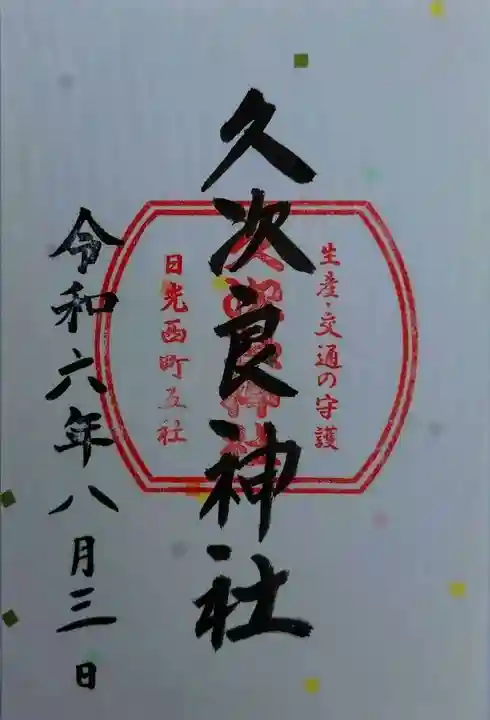 生産・交通の守護
久次良神社
日光西町五社
令和六年八月三日